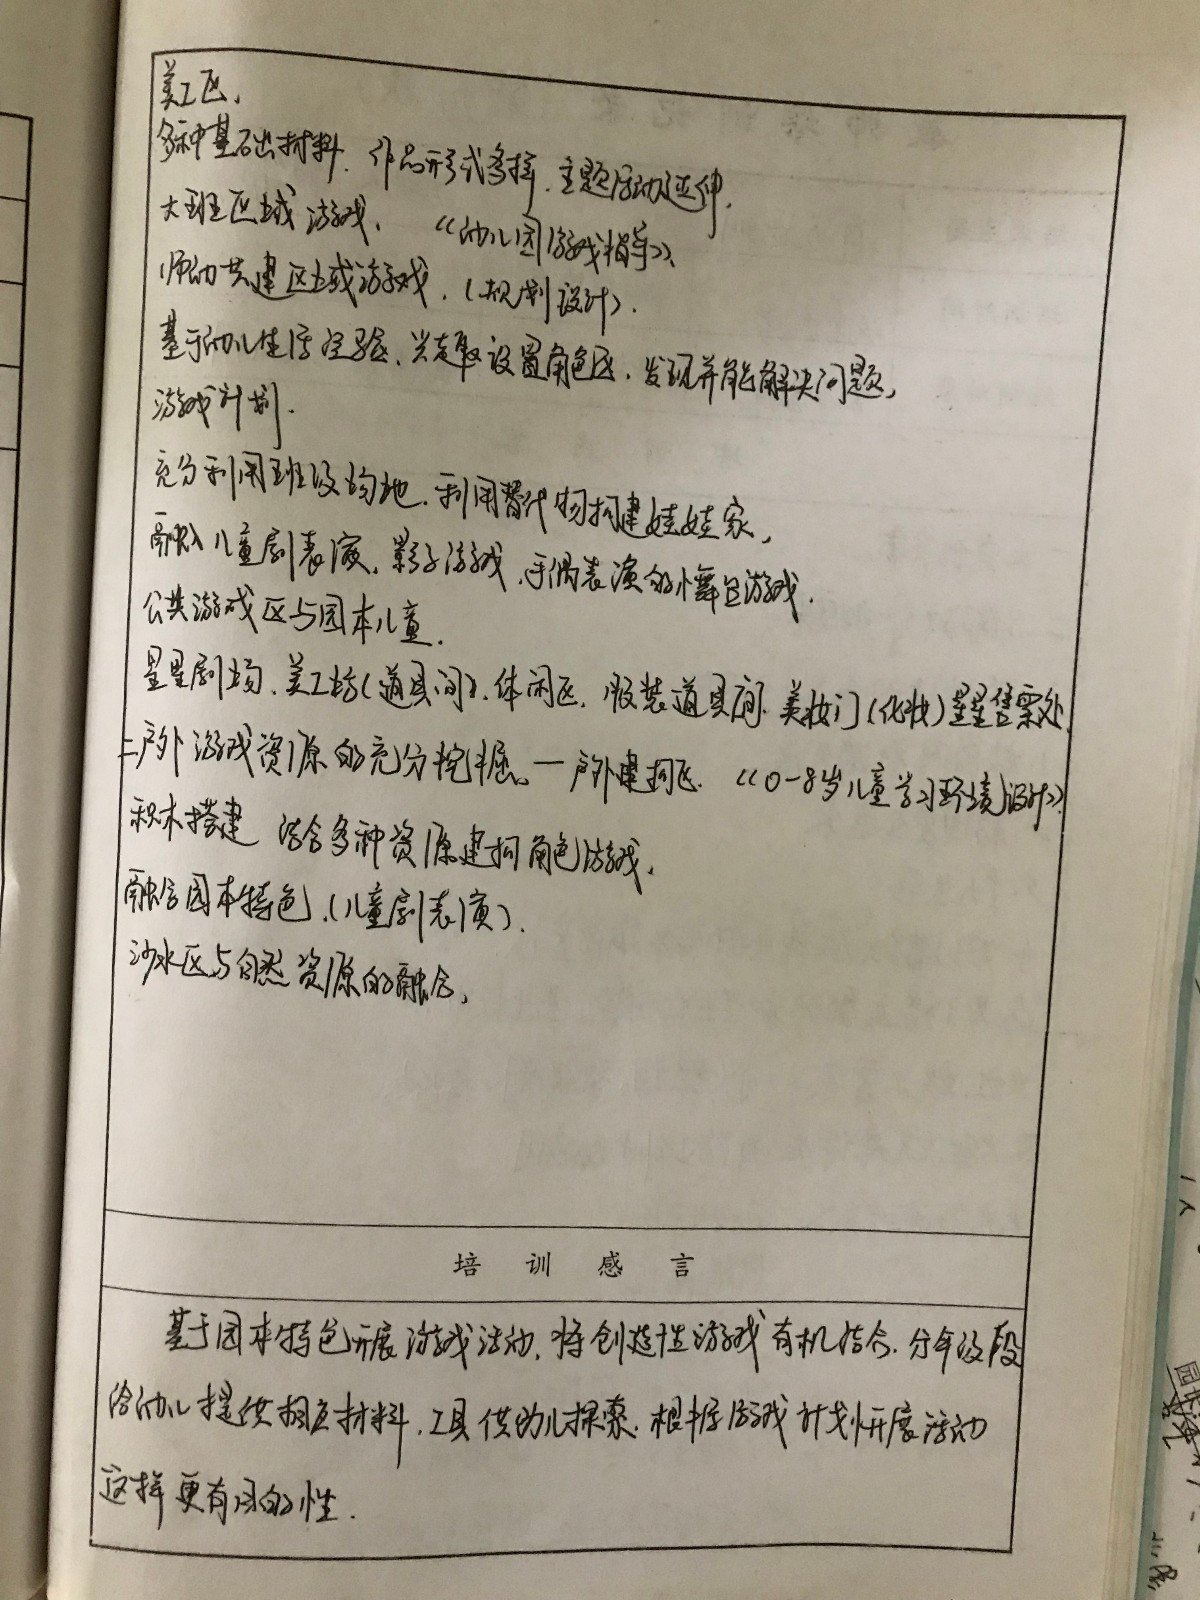 美工区、
多种基础材料、作品形式多样、主题活动延伸、
大班区域游戏、《幼儿园游戏指导》、
师幼共建区域游戏、(规划设计)、
基于幼儿生活经验、兴趣设置角色区、发现并能解决问题、
游戏计划.
充分利用班级场地、利用替代物构建娃娃家、
融入儿童剧表演、影子游戏、手偶表演的小舞台游戏.
公共游戏区与园本儿童.
星星剧场、美工坊(道具间)、休闲区、服装道具间、美妆门(化妆)星星售票处、
二户外游戏资源的充分挖掘。一户外建构区.《0-8岁儿童学习环境设计》
积木搭建 结合多种资源建构角色游戏、
融合园本特色、(儿童剧表演).
沙水区与自然资源的融合、
培训感言
基于园本特色开展游戏活动、将创造性游戏有机结合.分年级段
给幼儿提供相应材料、工具供幼儿探索、根据游戏计划开展活动
这样更有目的性.